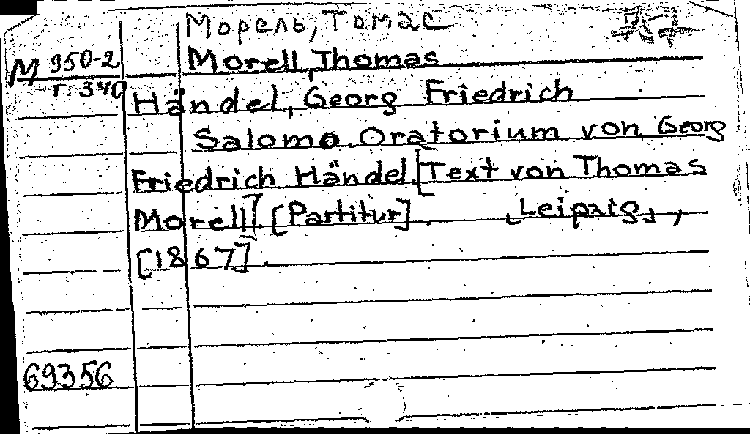 Морель, Томас
М 950-2
г. 340
Morell, Thomas
Händel, Georg Friedrich
Salomo. Oratorium von Georg
Friedrich Händel. [Text von Thomas
Morell]. [Partitur]. „Leipzig„,
[1867].
69356